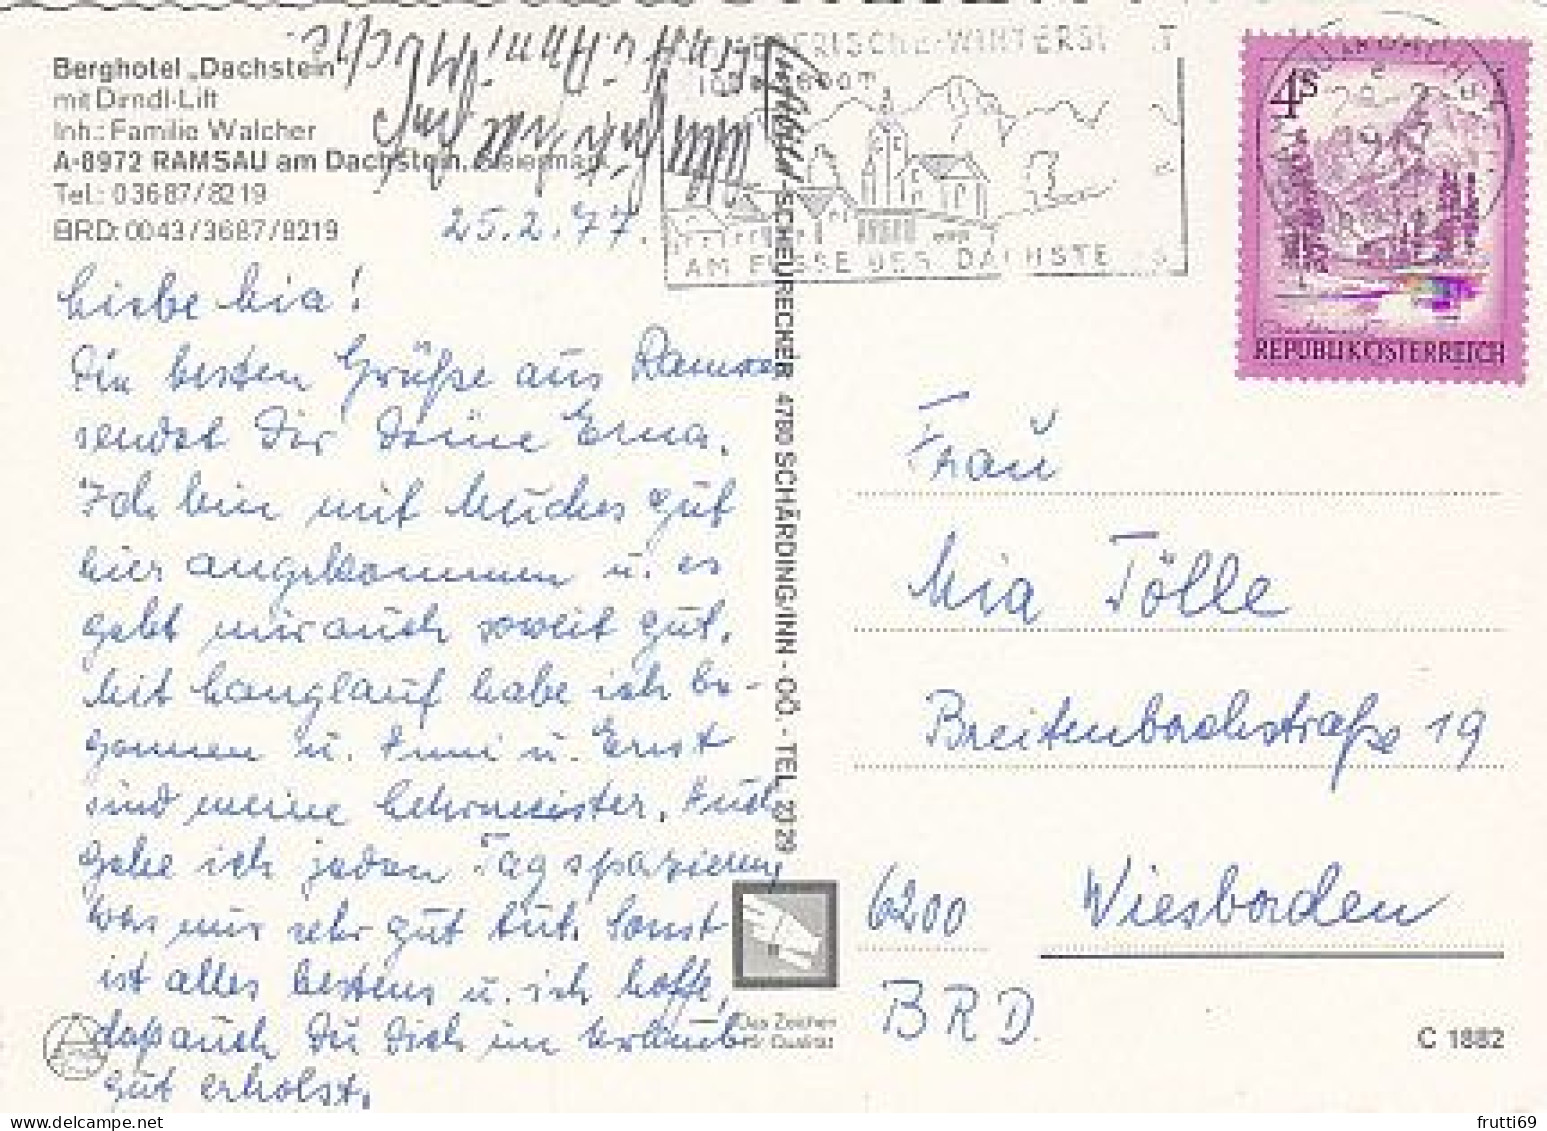 Berghotel „Dachstein"
mit Dirndl-Lift
Inh.: Familie Walcher
A-8972 RAMSAU am Dachstein, Steiermark
Tel.: 03687/8219
BRD: 0043/3687/8219
25.2.77.
Liebe Mia!
Die besten Grüße aus Ramsau
sendet Dir Deine Erna.
Ich bin mit Muches gut
hier angekommen u. es
geht mir auch soweit gut.
Mit Langlauf habe ich be-
gonnen u. Anni u. Ernst
sind meine Lehrmeister. Auch
gehe ich jeden Tag spazieren,
was mir sehr gut tut. Sonst
ist alles bestens u. ich hoffe,
daß auch Du Dich im Urlaub
gut erholst.
Ernst u. Anni Muche
SCHEURECHER, 4780 SCHÄRDING/INN - OÖ. - TEL. 23 29
WINTERS
AM FUSSE DES DACHSTEINS
4S
REPUBLIK ÖSTERREICH
Frau
Mia Tölle
Breitenbachstraße 19
6200 Wiesbaden
BRD.
Das Zeichen
für Qualität
C 1882
frutti69